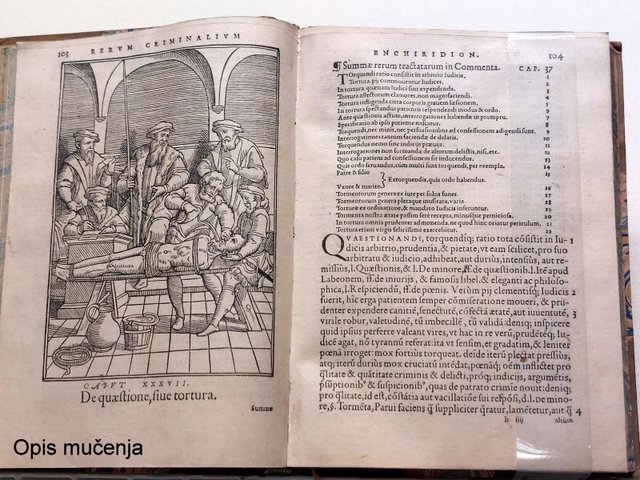 103
RERVM CRIMINALIVM
CAPVT XXXVII.
De quæstione, siue tortura.
Summæ
Opis mučenja
ENCHIRIDION. 104
¶ Summæ rerum tractatarum in Commenta. CAP. 37
Torquendi ratio consistit in arbitrio Iudicis, 1
Tortura pij commouentur Iudices. 2
In tortura quænam Iudici sunt expendenda. 3
Tortura affectorum clamores, non magnifaciendi. 4
Tortura instigenda citra corporis grauem læsionem. 5
In tortura spectandus patientis respondendi modus & ordo. 6
Ante quæstionis actum, interrogationes habendæ in promptu. 7
Specificatio ab ipso patiente nascatur. 8
Torquendi, nec minis, nec persuasionibus ad confessionem adigendi sunt. 9
Interrogationes tantum faciendæ de delatis. 10
Torquendus nemo sine indicijs præuijs. 11
Interrogationes non formandæ de aliorum delictis, nisi, etc. 12
Quo casu patiens ad confessionem sit inducendus. 13
Quis ordo seruandus, cùm multi sunt torquendi, per exempla. 14
Patre & filio
Extorquendis, quis ordo habendus.
Vxore & marito
Tormentorum genera ex iure per solos funes. 17
Tormentorum genera pleraque inusitata, varia. 18
Torturæ ex ordinatione, & mandato Iudicis inseruntur. 19
Tormenta nostra ætate passim serè recepta, minusque perniciosa. 20
In tortura omnia prudenter agenda, ne quid hinc oriatur periculum. 21
Tortura etiam virgis felicissimè exercebitur. 22
QVAESTIONANDI, torquendiq; ratio tota cõsistit in Iu- 1
dicis arbitrio, prudentia, & pietate, vt eam scilicet, pro suo
arbitratu & iudicio, adhibeat, aut durius, intensius, aut re-
missius, l. Quæstionis, & l. De minore, ff. de quæstionib. l. Itẽ apud
Labeonem, ff. de iniurijs, & famosis libel. & eleganti ac philoso-
phica, l. Respiciendũ, ff. de pœnis. Verùm pij clementisq; Iudicis 2
fuerit, hîc erga patientem semper cõmiseratione moueri, & pru-
denter expendere canitiẽ, senectutẽ, cõfectã ætatẽ, aut iuuentutẽ, 3
virile robur, valetudinẽ, tũ imbecillẽ, tũ validã: deniq; inspicere
quid ipsus perferre valeant vires, vt hac in re verũ, prudẽtẽq; Iu-
dicẽ agat, nõ tyrannũ referat: ita vt sensim, et gradatim, & leniter
pœnã irroget: mox fortiùs torqueat. deide iterũ plectat pressiùs,
atq; iterũ durius mox cruciatũ intẽdat, pœnãq; oẽm inflictet pro
q̃litate & quãtitate criminis & delicti, proq; indicijs, argumẽtis,
p̃sũptionib⁹ & suspicionib⁹, quas de patrato crimine nouit: deniq;
pro q̃litate, id est, cõstãtia aut vacillatiõe sui reddat, d. l. De mino-
re, §. Tormẽta, Parui faciens q̃ suppliciter q̃ratur, lamẽtetur, aut q̃ 4
li iij alium